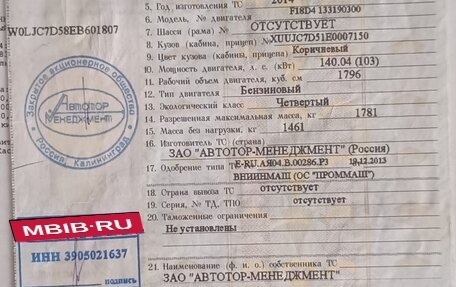 5. Год изготовления ТС 2014
6. Модель, № двигателя F18D4 133190300
W0LJC7D58EB601807
7. Шасси (рама) № ОТСУТСТВУЕТ
8. Кузов (кабина, прицеп) № XUUJC7D51E0007150
9. Цвет кузова (кабины, прицепа) Коричневый
10. Мощность двигателя, л. с. (кВт) 140.04 (103)
11. Рабочий объем двигателя, куб. см 1796
12. Тип двигателя Бензиновый
13. Экологический класс Четвертый
14. Разрешенная максимальная масса, кг 1781
15. Масса без нагрузки, кг 1461
16. Изготовитель ТС (страна)
ЗАО "АВТОТОР-МЕНЕДЖМЕНТ" (Россия)
17. Одобрение типа ТС № E-RU.АЯ04.В.00286.Р3 18.12.2013
ВНИИНМАШ (ОС "ПРОММАШ")
18. Страна вывоза ТС отсутствует
19. Серия, № ТД, ТПО отсутствует
20. Таможенные ограничения
Не установлены
21. Наименование (ф. и. о.) собственника ТС
ЗАО "АВТОТОР-МЕНЕДЖМЕНТ"
Закрытое акционерное общество
Автотор
Менеджмент
Россия, Калининград
MBIB.RU
ИНН 3905021637
подпись